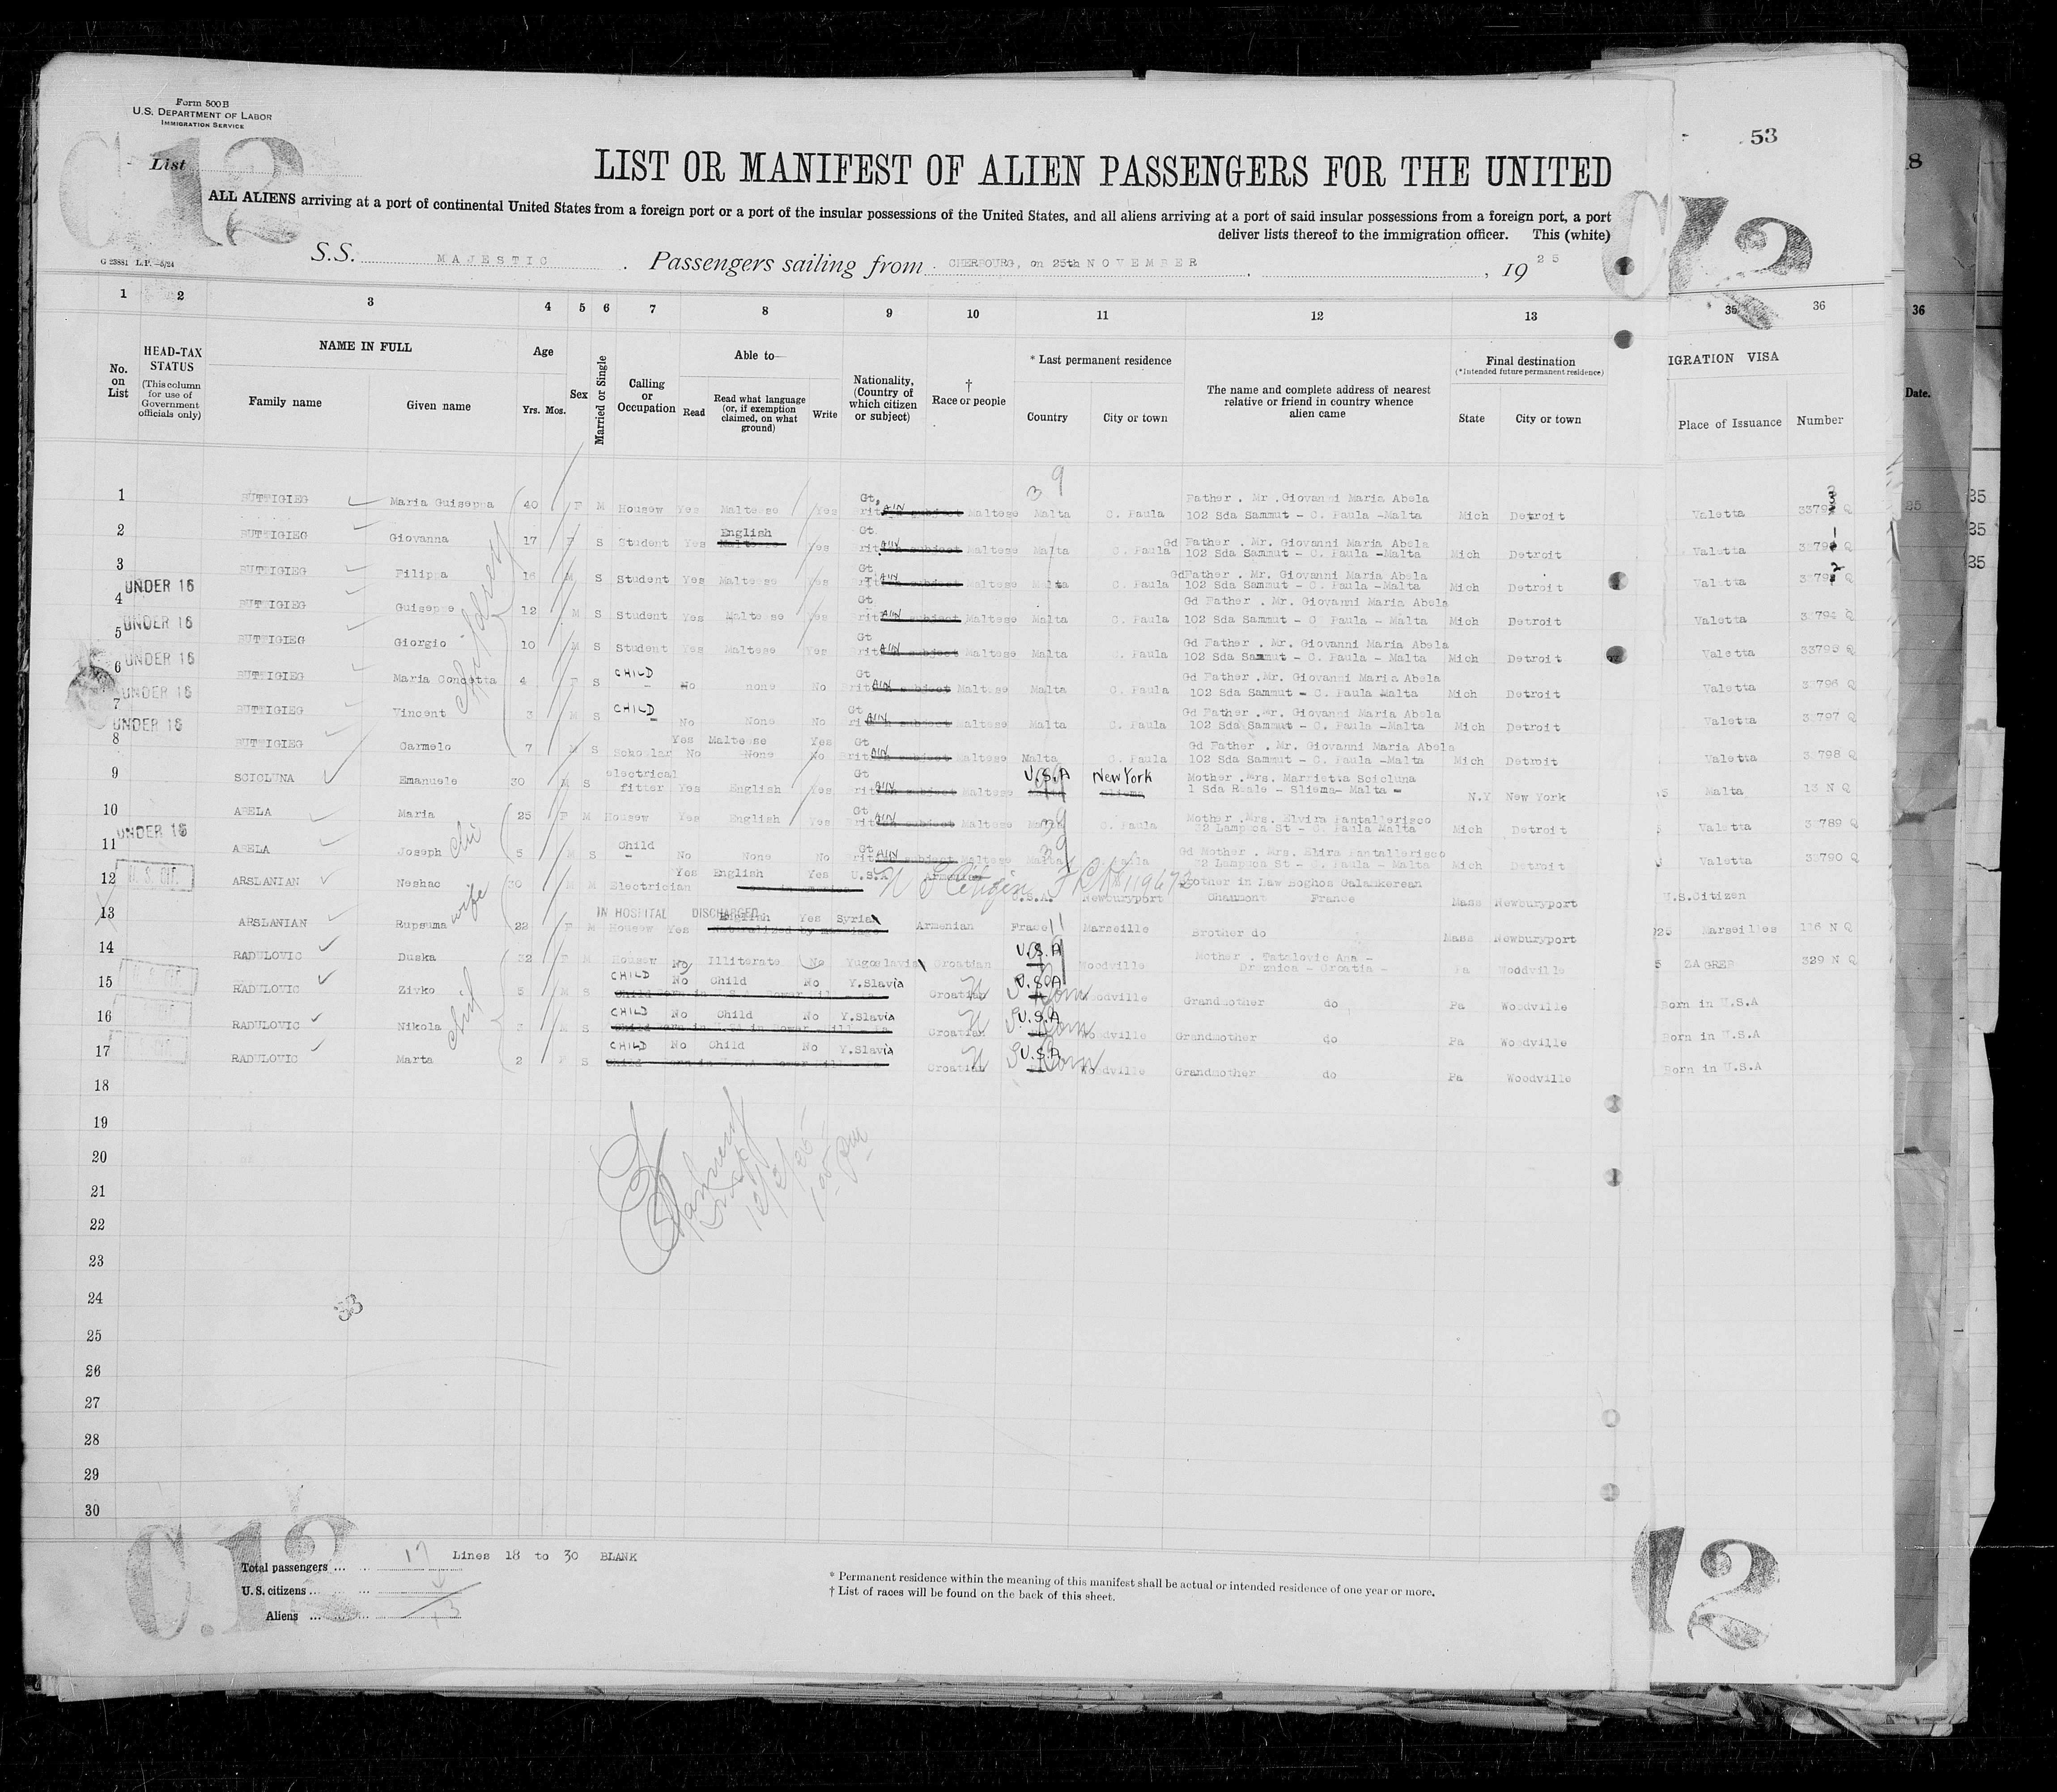 Form 500 B
U.S. DEPARTMENT OF LABOR
IMMIGRATION SERVICE
C.12
List
53
LIST OR MANIFEST OF ALIEN PASSENGERS FOR THE UNITED
ALL ALIENS arriving at a port of continental United States from a foreign port or a port of the insular possessions of the United States, and all aliens arriving at a port of said insular possessions from a foreign port, a port
deliver lists thereof to the immigration officer. This (white)
S.S. MAJESTIC . Passengers sailing from CHERBOURG, on 25th NOVEMBER , 1925
1 2 3 4 5 6 7 8 9 10 11 12 13 35 36 36
No. on List
HEAD-TAX STATUS
(This column for use of Government officials only)
NAME IN FULL
Family name
Given name
Age
Yrs. Mos.
Sex
Married or Single
Calling or Occupation
Able to—
Read
Read what language (or, if exemption claimed, on what ground)
Write
Nationality, (Country of which citizen or subject)
† Race or people
* Last permanent residence
Country
City or town
The name and complete address of nearest relative or friend in country whence alien came
Final destination
(*Intended future permanent residence)
State
City or town
IGRATION VISA
Place of Issuance
Number
Date.
1 BUTTIGIEG Maria Guiseppa 40 F M Housew Yes Maltese Yes Gt. Maltese Malta C. Paula Father . Mr .Giovanni Maria Abela 102 Sda Sammut - C. Paula -Malta Mich Detroit Valetta
2 BUTTIGIEG Giovanna 17 F S Student Yes English Yes Gt. Maltese Malta C. Paula Gd Father . Mr. Giovanni Maria Abela 102 Sda Sammut - C. Paula -Malta Mich Detroit Valetta
3 BUTTIGIEG Filippa 16 M S Student Yes Maltese Yes Gt Maltese Malta C. Paula GdFather . Mr. Giovanni Maria Abela 102 Sda Sammut - C. Paula -Malta Mich Detroit Valetta
UNDER 16
4 BUTTIGIEG Guiseppe 12 M S Student Yes Maltese Yes Gt Maltese Malta C. Paula Gd Father . Mr. Giovanni Maria Abela 102 Sda Sammut - C. Paula - Malta Mich Detroit Valetta 33794 Q
UNDER 16
5 BUTTIGIEG Giorgio 10 M S Student Yes Maltese Yes Gt Maltese Malta C. Paula Gd Father . Mr. Giovanni Maria Abela 102 Sda Sammut - C. Paula - Malta Mich Detroit Valetta 33795 Q
UNDER 16
6 BUTTIGIEG Maria Concetta 4 F S CHILD No none No Gt Maltese Malta C. Paula Gd Father .Mr. Giovanni Maria Abela 102 Sda Sammut - C. Paula Malta Mich Detroit Valetta 33796 Q
UNDER 16
7 BUTTIGIEG Vincent 3 M S CHILD No None No Gt Maltese Malta C. Paula Gd Father .Mr. Giovanni Maria Abela 102 Sda Sammut - C. Paula -Malta Mich Detroit Valetta 33797 Q
UNDER 16
8 BUTTIGIEG Carmelo 7 M S Scholar Yes Maltese Yes No None No Gt Maltese Malta C. Paula Gd Father . Mr. Giovanni Maria Abela 102 Sda Sammut - C. Paula - Malta Mich Detroit Valetta 33798 Q
9 SCICLUNA Emanuele 30 M S electrical fitter Yes English Yes Gt Maltese U.S.A New York Mother .Mrs. Marrietta Scicluna 1 Sda Reale - Sliema- Malta - N.Y New York Malta 13 N Q
10 ABELA Maria 25 F M Housew Yes English Yes Gt Maltese Malta C. Paula Mother .Mrs. Elvira Pantallerisco Mich Detroit Valetta 33789 Q
UNDER 16
11 ABELA Joseph 5 M S Child No None No Gt Maltese Malta C. Paula Gd Mother . Mrs. Elira Pantallerisco Mich Detroit Valetta 33790 Q
12 U.S. CIT. ARSLANIAN Neshac 30 M M Electrician Yes English Yes U.S.A U.S.A. Newburyport Brother in Law Boghos Galamkerean Chaumont France Mass Newburyport U.S.Citizen
IN HOSPITAL DISCHARGED
13 ARSLANIAN wife Rupsuma 22 F M Housew Yes English Yes Syria Armenian France Marseille Brother do Mass Newburyport Marseilles 116 N Q
14 RADULOVIC Duska 32 F M Housew No Illiterate No Yugoslavia Croatian U.S.A Woodville Mother . Tatalovic Ana - Croatia - Pa Woodville ZAGREB 329 N Q
15 RADULOVIC Zivko 5 M S CHILD No Child No Y.Slavia Croatian U.S.A Woodville Grandmother do Pa Woodville Born in U.S.A
16 RADULOVIC Nikola 3 M S CHILD No Child No Y.Slavia Croatian U.S.A Woodville Grandmother do Pa Woodville Born in U.S.A
17 RADULOVIC Marta 2 F S CHILD No Child No Y.Slavia Croatian U.S.A Woodville Grandmother do Pa Woodville Born in U.S.A
18
19
20
21
22
23
24
25
26
27
28
29
30
53
C.12
12
Total passengers 17 Lines 18 to 30 BLANK
U.S. citizens
Aliens 13
* Permanent residence within the meaning of this manifest shall be actual or intended residence of one year or more.
† List of races will be found on the back of this sheet.